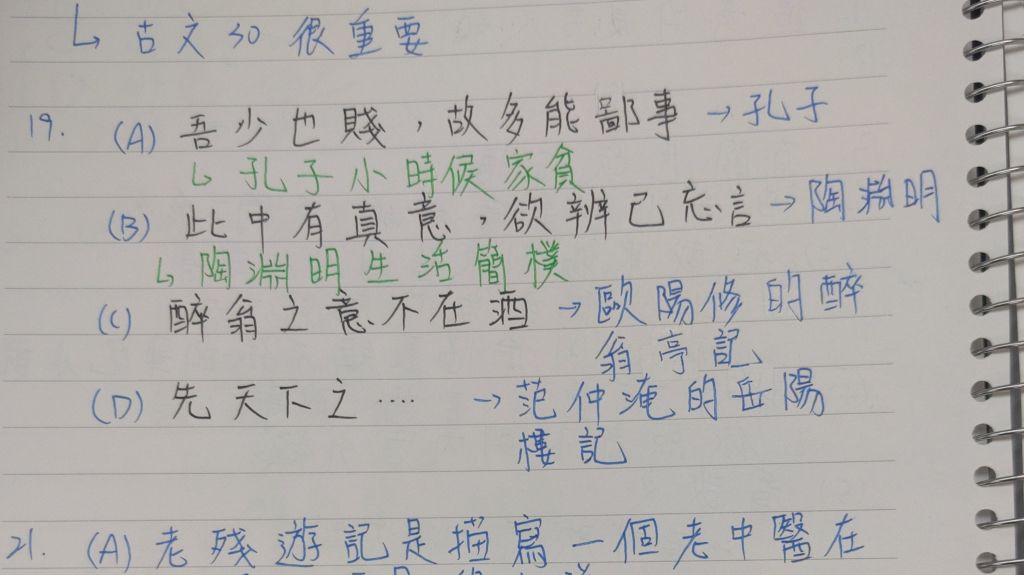 ↳ 古文30 很重要
19. (A) 吾少也賤，故多能鄙事 → 孔子
↳ 孔子小時候家貧
(B) 此中有真意，欲辨已忘言 → 陶淵明
↳ 陶淵明生活簡樸
(C) 醉翁之意不在酒 → 歐陽修的醉
翁亭記
(D) 先天下之…… → 范仲淹的岳陽
樓記
21. (A) 老殘遊記是描寫一個老中醫在